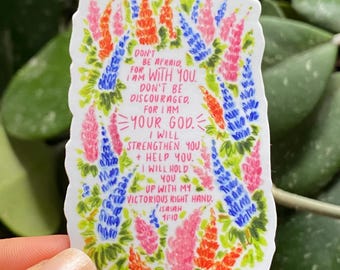 DON'T
BE AFRAID,
FOR
I AM WITH YOU.
DON'T BE
DISCOURAGED,
FOR I AM
YOUR GOD.
I WILL
STRENGTHEN YOU
+ HELP YOU.
I WILL HOLD
YOU
UP WITH MY
VICTORIOUS RIGHT HAND.
ISAIAH
41:10